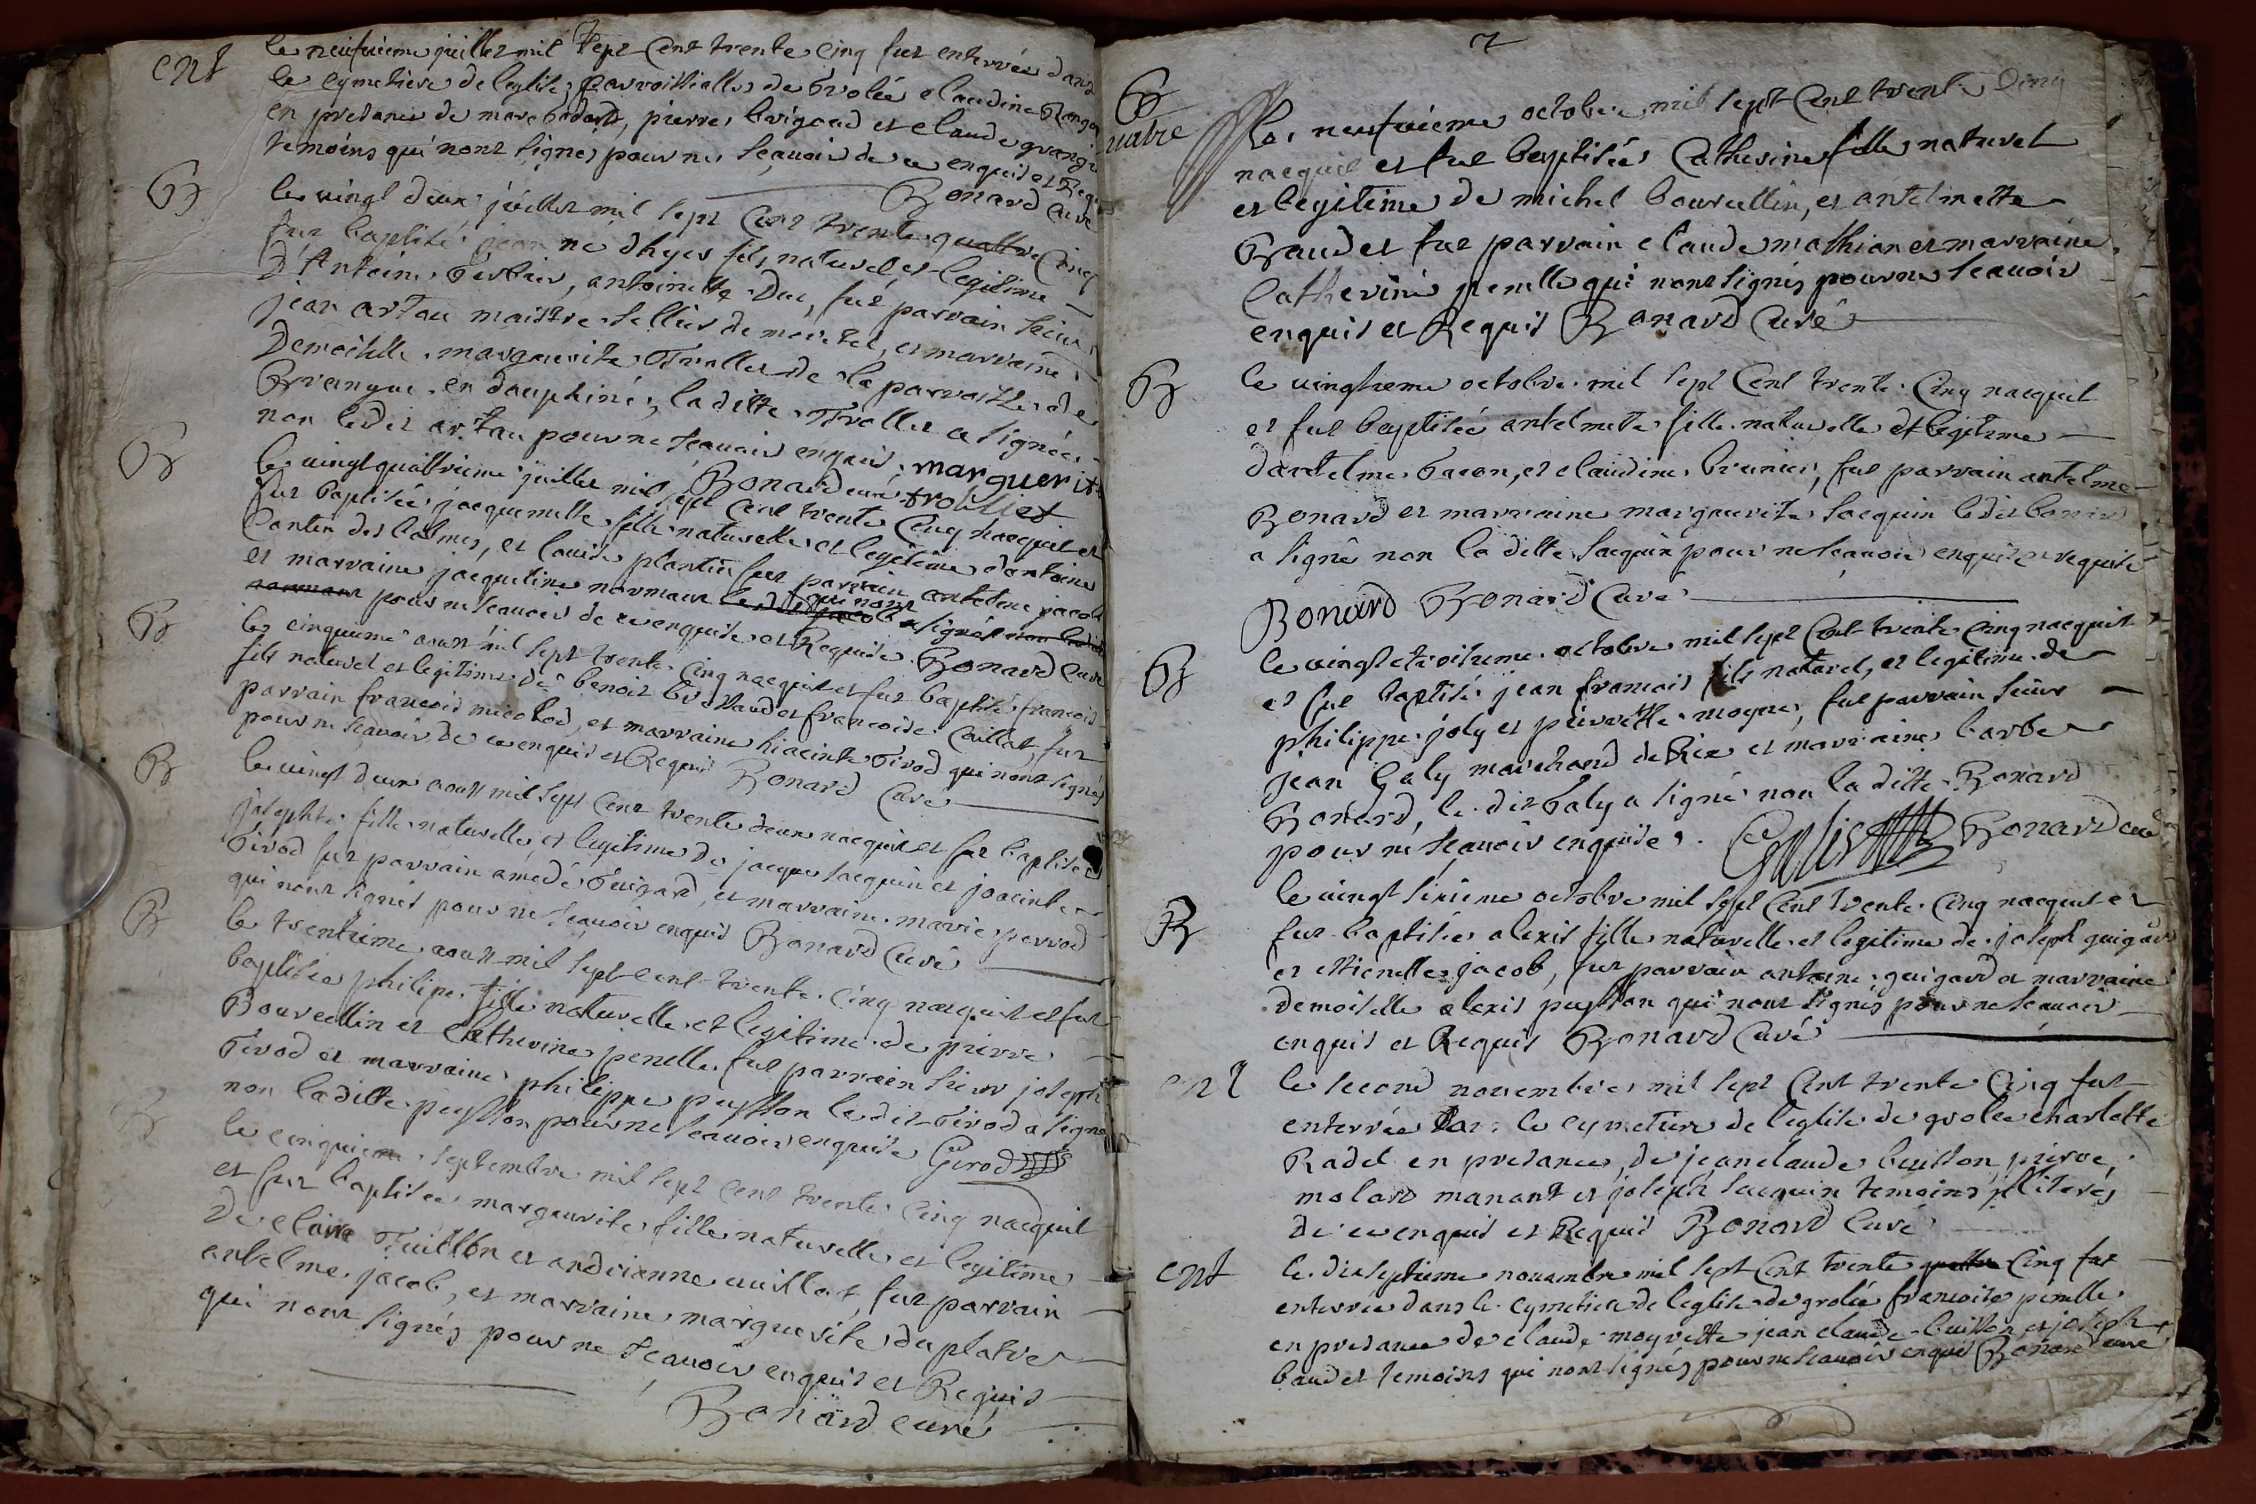 ent le neufvieme juillet mil sept Cent trente Cinq fut enterrée dans
le cymetiere de leglise parroissialle de Grolée claudine
en presance de marc pierre brigand et claude
temoins qui nont signés pour ne sçauoir de ce enquis et
Bonard Curé
B le vingt deux juillet mil sept Cent trente quattre Cinq
fut baptisé jean né dhyer fils naturel et legitime
d'Antoine antoinette Duc, fut parrain sieur
jean artau maistre sellier de et marraine
Demoiselle marguerite Trollet de la parroisse de
Brangue en dauphiné, la ditte Trollet a signée
non ledit artau pour ne sçauoir enquis, marguerite
Bonard curé trolliet
B le vingt quattrieme juillet mil sept Cent trente Cinq nacquit et
fut baptisée jacquemette fille naturelle et legitime dantoine
Contin des balmes, et louise plantin fut parrain antelme jacob
et marraine jacqueline normant qui nont signés
pour ne sceauoir de ce enquise et Requise Bonard Curé
B le cinquieme aoust mil sept trente Cinq nacquit et fut baptisé francois
fils naturel et legitime de benoit et francoise Caillat, fut
parrain francois et marraine hiacinte Girod qui nont signés
pour ne sçauoir de ce enquis et Requis Bonard Curé
B le vingt deux aoust mil sept Cent trente deux nacquit et fut baptisée
josephte fille naturelle et legitime de jacque Jacquin et joacinte
Girod fut parrain amedé Guigard, et marraine marie perrod
qui nont signés pour ne sceauoir enquis Bonard Curé
B le trentieme aoust mil sept cent trente Cinq nacquit et fut
baptisée philipe fille naturelle et legitime de pierre
Bourcellin et Catherine penelle fut parrain sieur joseph
Girod et marraine philippe peysson le dit Girod a signé
non la ditte peysson pour ne sceauoir enquise Girod
B le cinquieme septembre mil sept cent trente Cinq nacquit
et fut baptisée marguerite fille naturelle et legitime
De claire et andrianne cuillat, fut parrain
antelme jacob, et marraine marguerite du platre
qui nont signés pour ne sceauoir enquis et Requis
Bonard curé
7
B
le neufvieme octobre mil sept Cent trente Cinq
nacquit et fut baptisée Catherine fille naturel
et legitime de michel bourcellin, et antelmette
Baudet fut parrain claude mathian et marraine
Catherine penelle qui nont signés pour ne sceauoir
enquis et Requis Bonard Curé
B le vingtieme octobre mil sept Cent trente Cinq nacquit
et fut baptisée antelmette fille naturelle et legitime
dantelme bacon, et claudine brunier, fut parrain antelme
Bonard et marraine marguerite Jacquin ledit bonard
a signé non la ditte Jacquin pour ne sceauoir enquise requise
Bonard Bonard Curé
B le vingt troisieme octobre mil sept Cent trente Cinq nacquit
et fut baptisé jean francois fils naturel, et legitime de
philippe joly et pierrette moyne, fut parrain sieur
jean Galy marchand de et marraine barbe
Bonard, le dit Galy a signé non la ditte Bonard
pour ne sceauoir enquise. Bonard curé
B le vingt sixieme octobre mil sept Cent trente Cinq nacquit et
fut baptisée alexis fille naturelle et legitime de joseph guigard
et estienette jacob, fut parrain antoine guigard et marraine
demoiselle alexis peysson qui nont signés pour ne sceauoir
enquis et Requis Bonard Curé
ent le second novembre mil sept Cent trente Cinq fut
enterrée dans le cymetiere de leglise de grolée charlotte
Radet en presance, de jean claude buisson, pierre,
molard manant et joseph Jacquin temoins jlliterés
de ce enquis et Requis Bonard Curé
ent le dix septieme novembre mil sept Cent trente quattre Cinq fut
enterrée dans le cymetiere de leglise de grolée francoise penelle
en presance de claude moyrette jean claude buisson, et joseph
baudet temoins qui nont signés pour ne sceauoir enquis Bonard curé